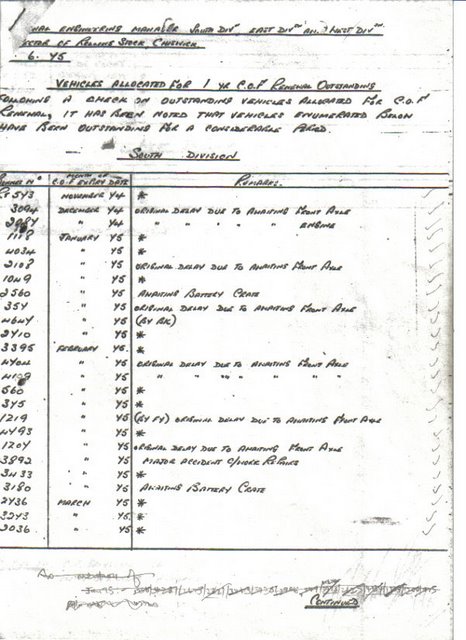 NAL ENGINEERING MANAGER SOUTH DIVN EAST DIVN AND WEST DIVN
ECTOR OF ROLLING STOCK CHISWICK
6. 45
VEHICLES ALLOCATED FOR 1 YR C.O.F RENEWAL OUTSTANDING
FOLLOWING A CHECK ON OUTSTANDING VEHICLES ALLOCATED FOR C.O.F
RENEWAL, IT HAS BEEN NOTED THAT VEHICLES ENUMERATED BELOW
HAVE BEEN OUTSTANDING FOR A CONSIDERABLE PERIOD.
SOUTH DIVISION
NO MONTH OF C.O.F EXPIRY DATE REMARKS.
543 NOVEMBER 44 *
3094 DECEMBER 44 ORIGINAL DELAY DUE TO AWAITING FRONT AXLE
" 44 " " " " " ENGINE
1118 JANUARY 45 *
4034 " 45 *
2108 " 45 ORIGINAL DELAY DUE TO AWAITING FRONT AXLE
1049 " 45 *
2560 " 45 AWAITING BATTERY CRATE
354 " 45 ORIGINAL DELAY DUE TO AWAITING FRONT AXLE
4644 " 45
2410 " 45 *
3395 FEBRUARY 45. *
4404 " 45 ORIGINAL DELAY DUE TO AWAITING FRONT AXLE
" 45 " " " " " " "
560 " 45 *
345 " 45 *
1219 " 45 (BY FY) ORIGINAL DELAY DUE TO AWAITING FRONT AXLE
4493 " 45 *
1204 " 45 ORIGINAL DELAY DUE TO AWAITING FRONT AXLE
3892 " 45 MAJOR ACCIDENT C/WORK REPAIRS
3433 " 45 *
3180 " 45 AWAITING BATTERY CRATE
2436 MARCH 45 *
3243 " 45 *
2036 " 45 *
CONTINUED